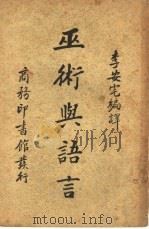 李安宅編譯
巫術與語言
商務印書館發行
www.doukan.org